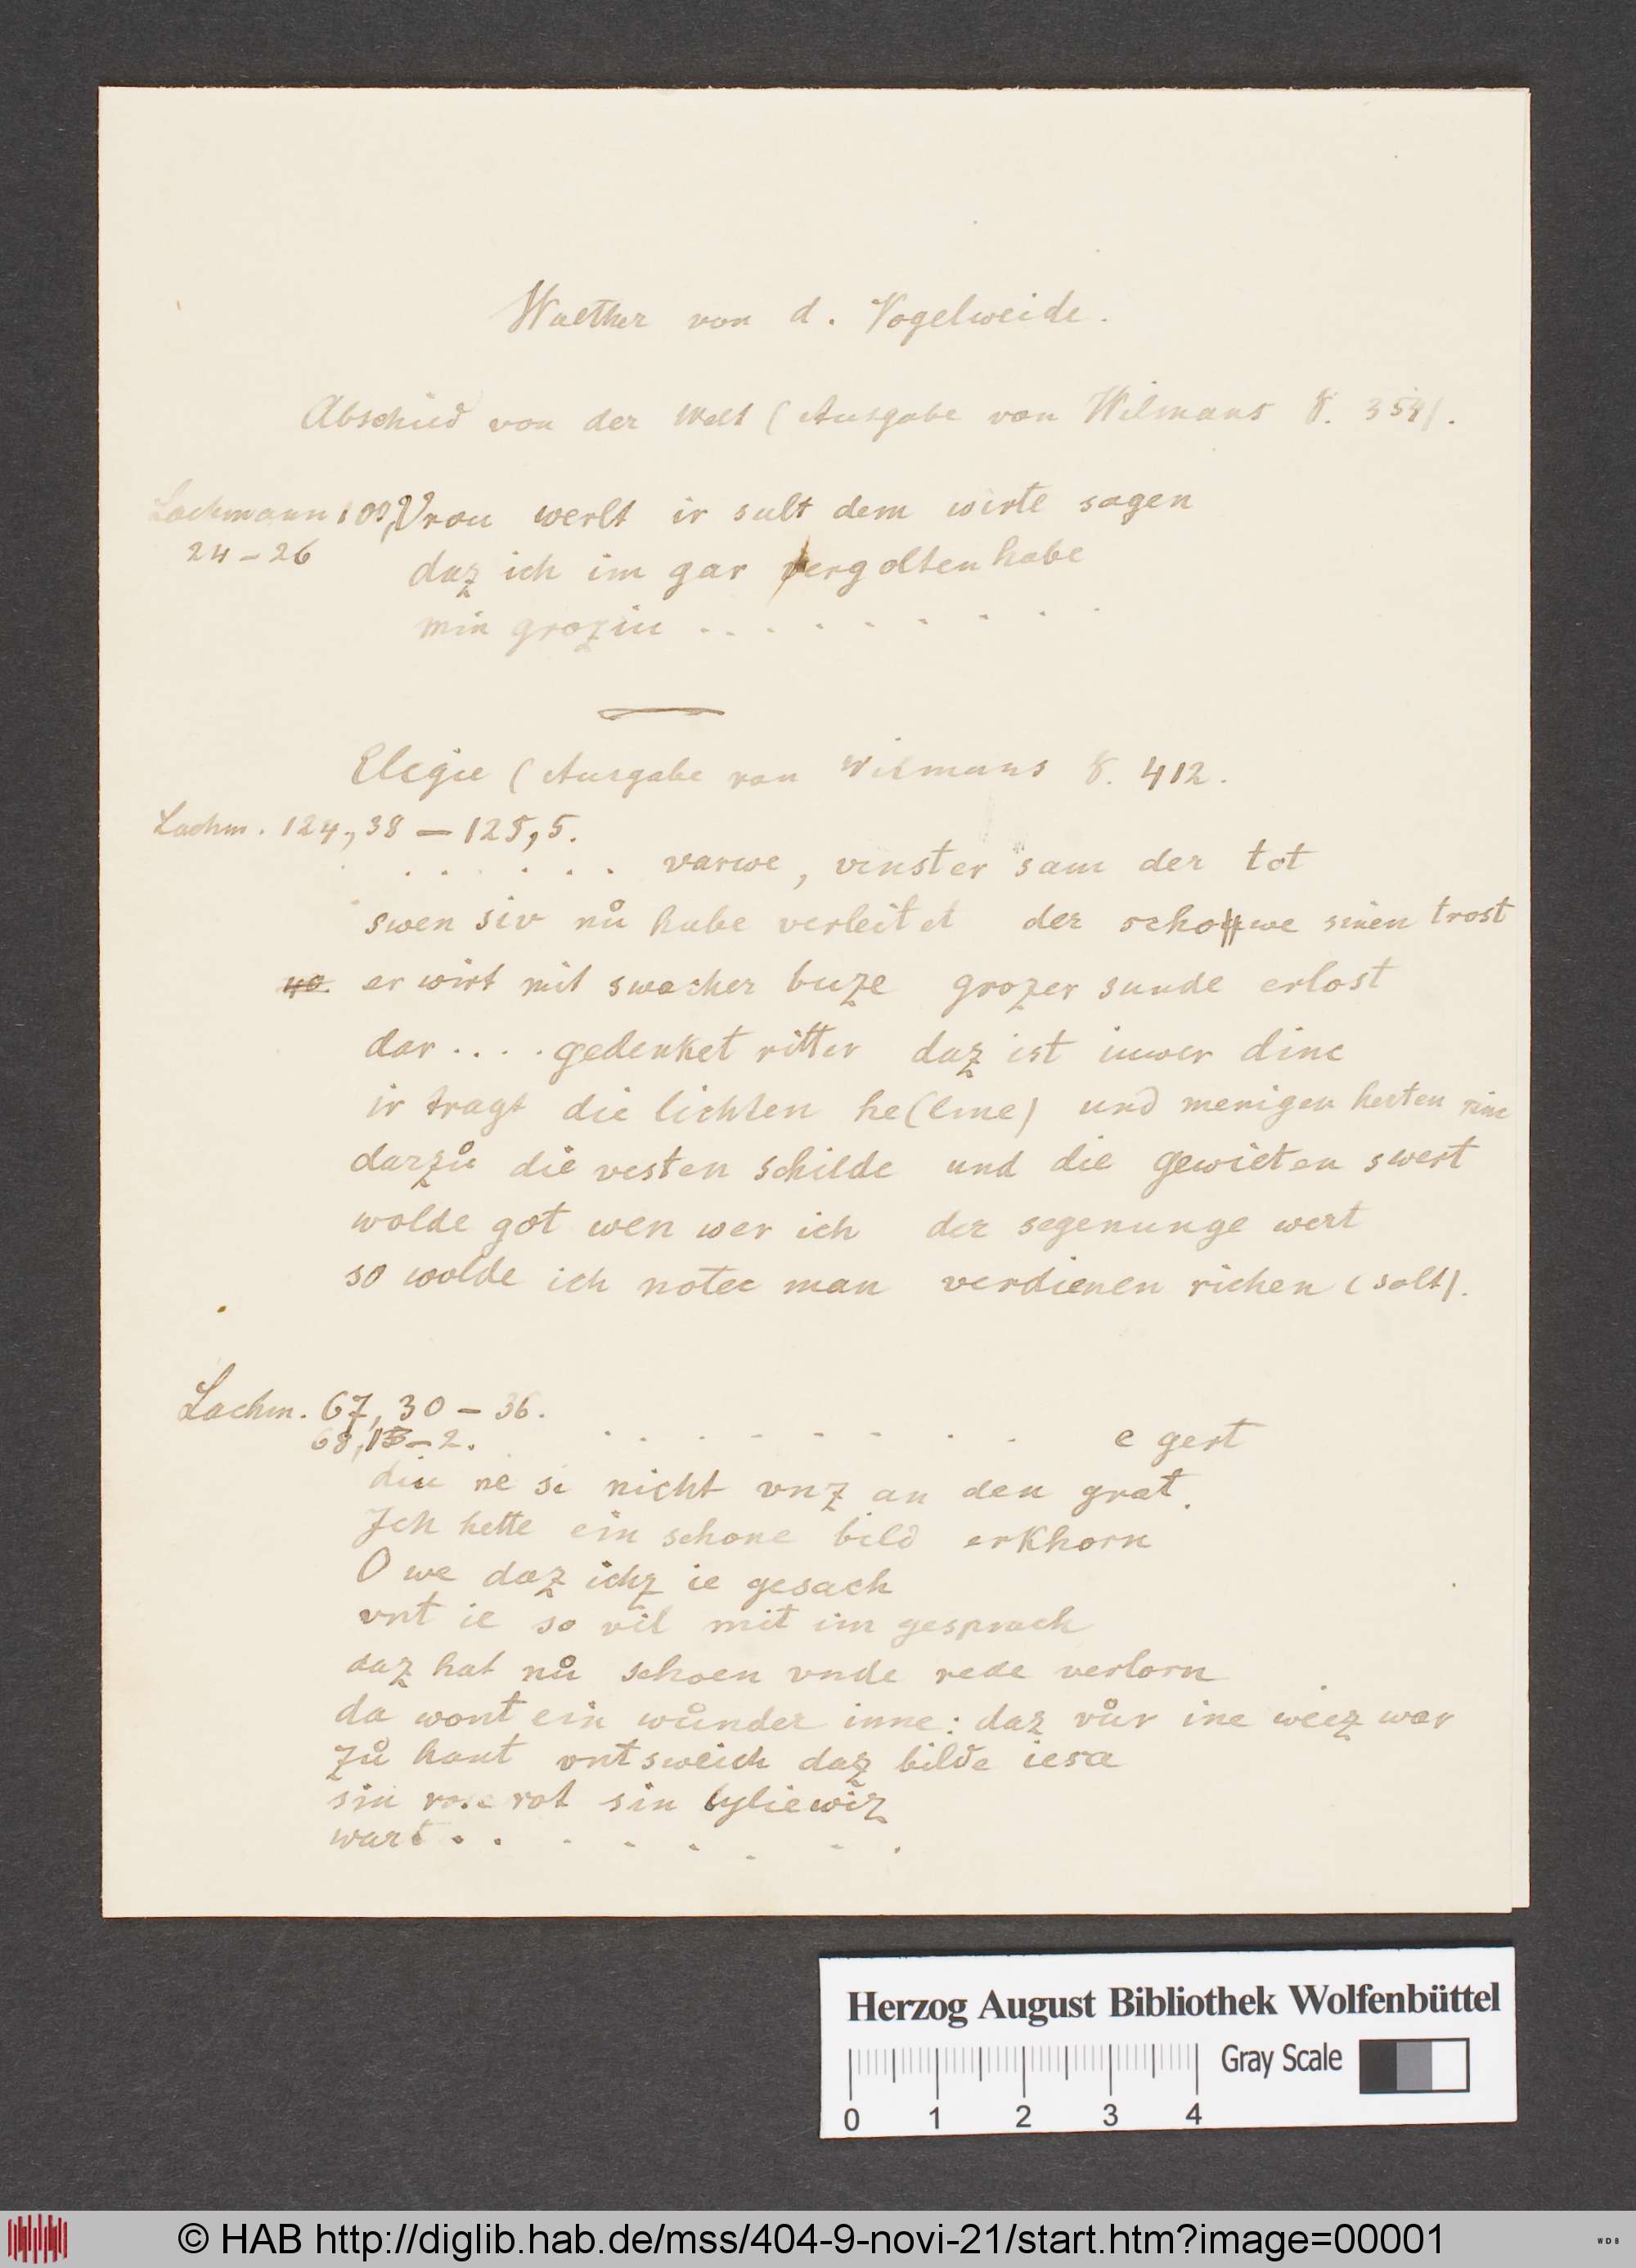 Walther von d. Vogelweide.
Abschied von der Welt (Ausgabe von Wilmans S. 354).
Lachmann 100,
24-26
Vrou werlt ir sult dem wirte sagen
daz ich im gar vergolten habe
min groziu . . . . . . . . .
Elegie (Ausgabe von Wilmans S. 412.
Lachm. 124,38 — 125,5.
. . . . . . varwe, vinster sam der tot
swen siv nů habe verleitet der schouwe sinen trost
er wirt mit swacher buze grozer sunde erlost
dar . . . . gedenket ritter daz ist iuwer dinc
ir tragt die lichten he(lme) und menigen herten rinc
darzů die vesten schilde und die gewieten swert
wolde got wen wer ich der segenunge wert
so wolde ich notec man verdienen richen (solt).
Lachm. 67,30 - 36.
68,1-2.
. . . . . . . . . e gert
diu ne si nicht vnz an den grat.
Ich hette ein schone bild erkhorn
O we daz ichz ie gesach
vnt ie so vil mit im gesprach
daz hat nů schoen vnde rede verlorn
da wont ein wůnder inne: daz vůr ine weiz war
zů hant vntsweich daz bilde iesa
sin rose rot sin lyliewiz
wart . . . . . . . .
Herzog August Bibliothek Wolfenbüttel
Gray Scale
0 1 2 3 4
© HAB http://diglib.hab.de/mss/404-9-novi-21/start.htm?image=00001
WDB